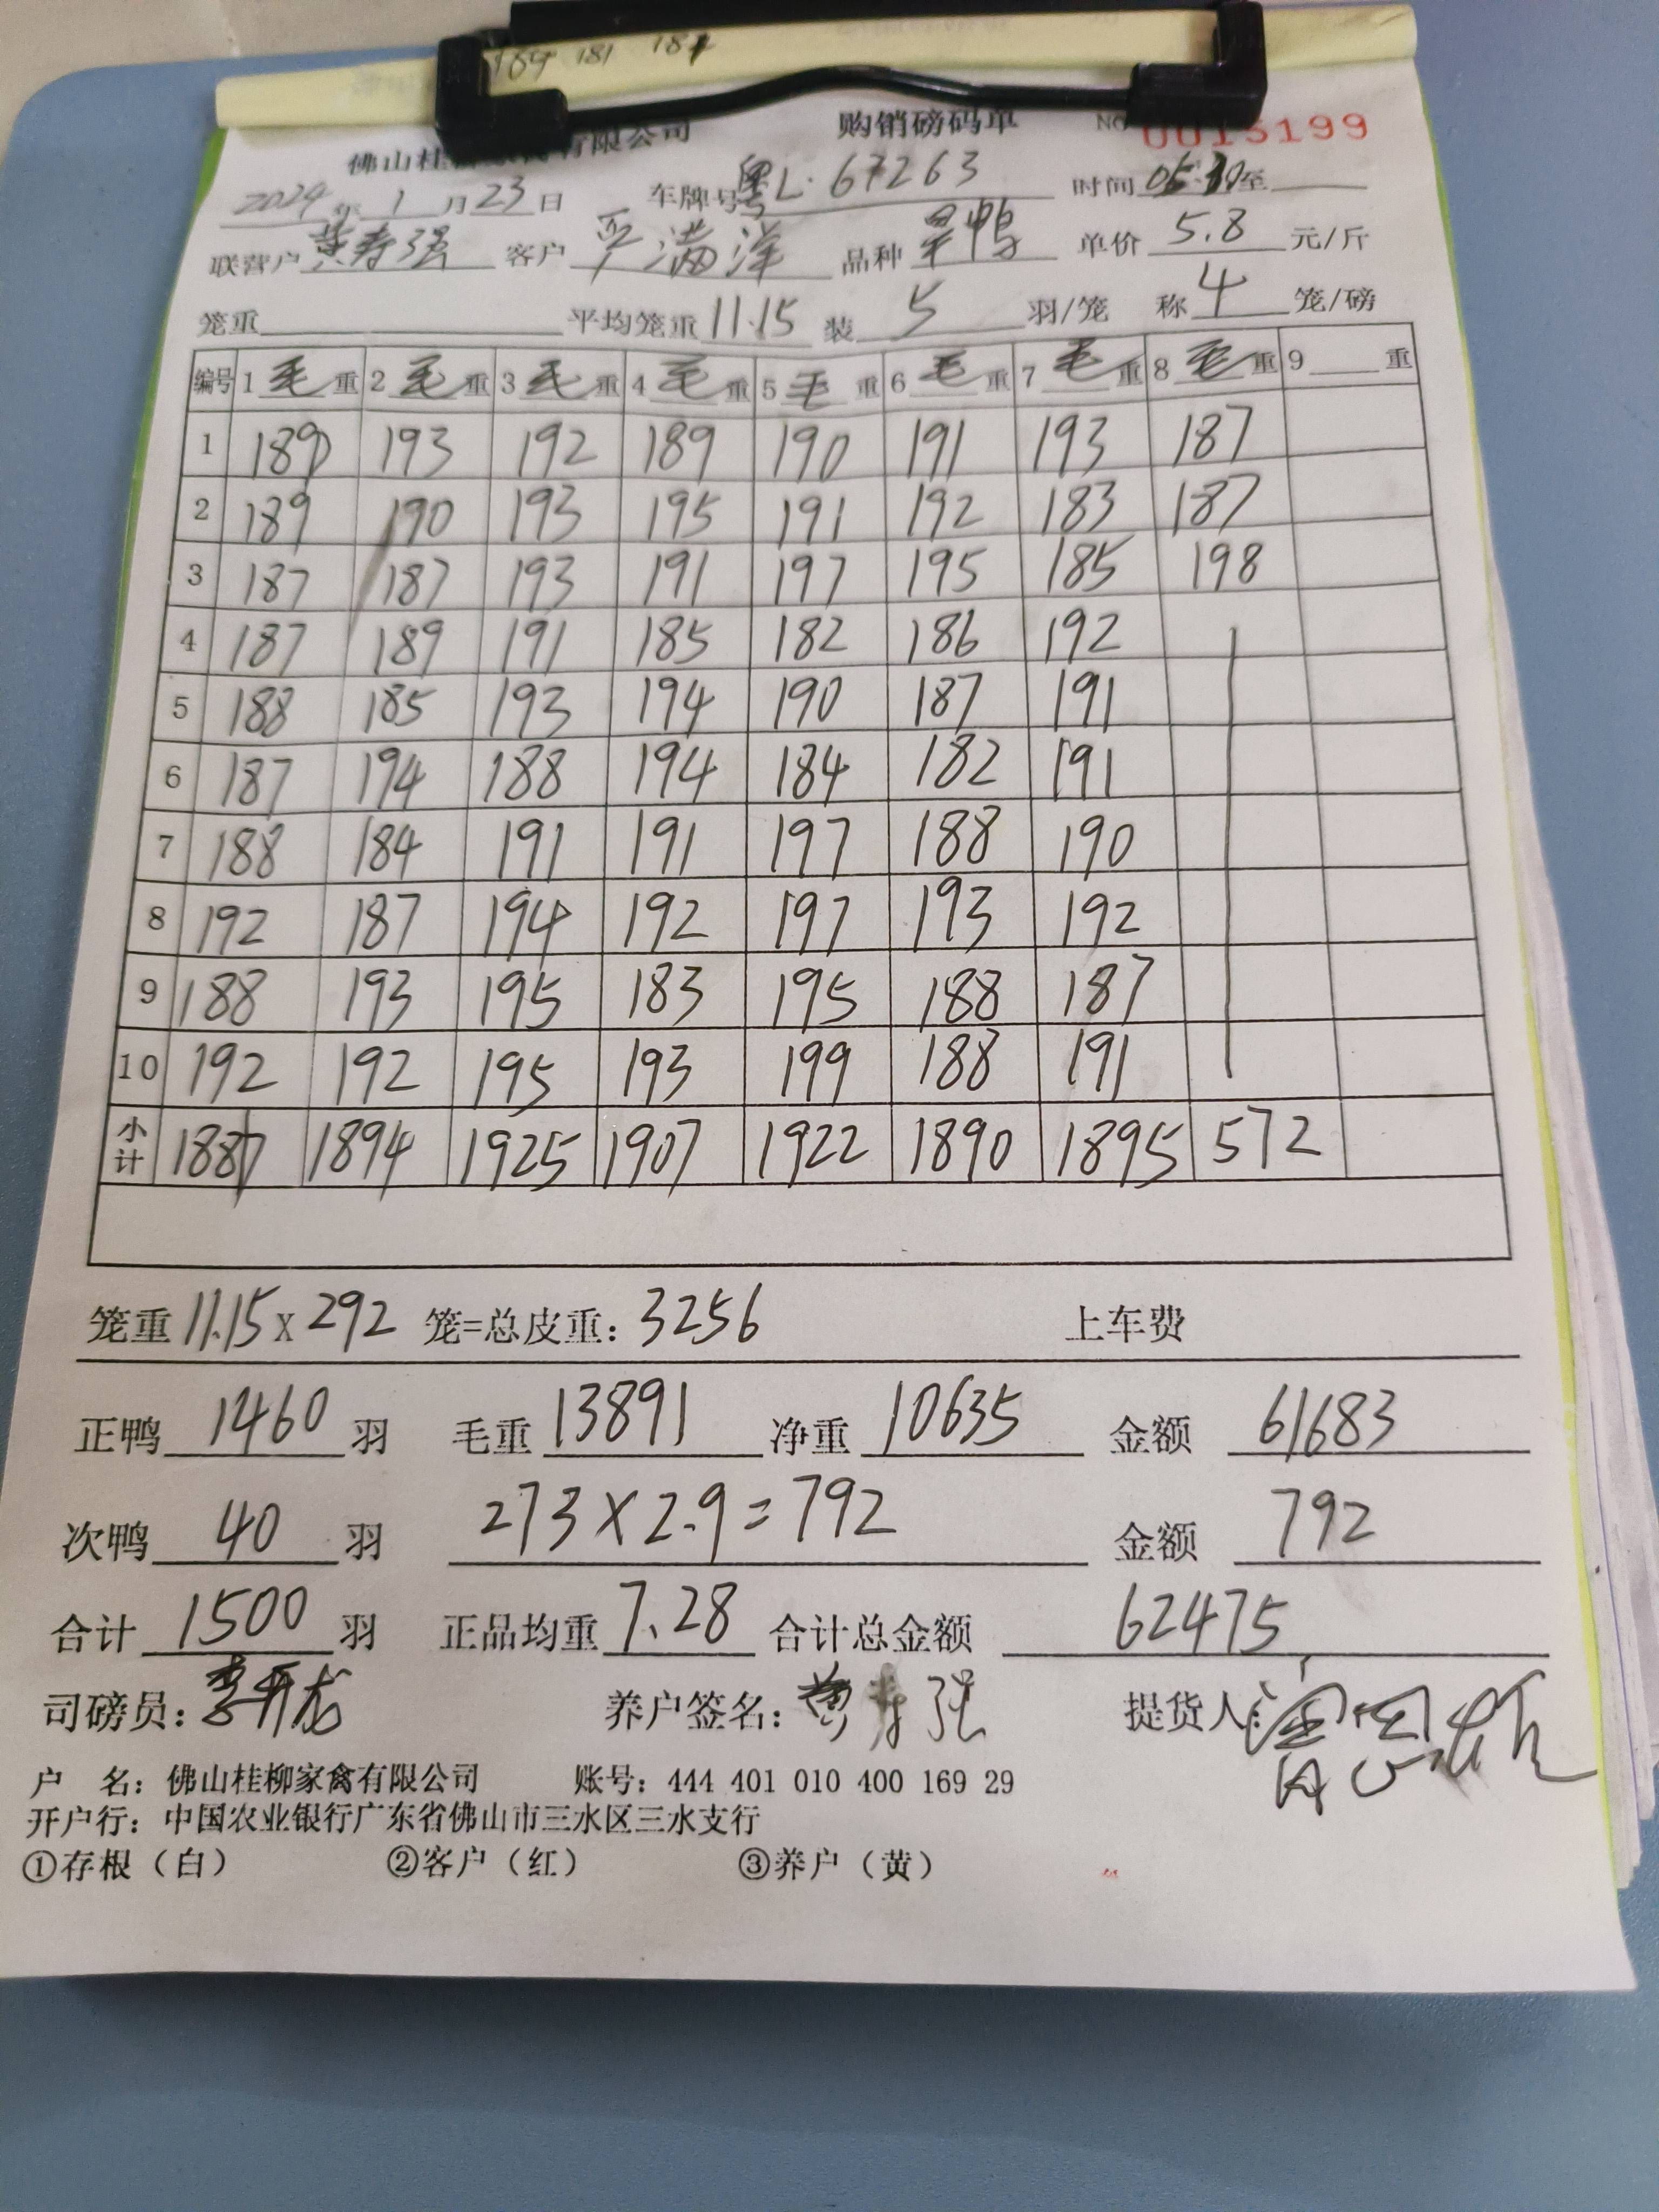 189 181 187
佛山桂柳家禽有限公司 购销磅码单 NO 0015199
2024年1月23日 车牌号粤L·67263 时间 至
联营户黄寿强 客户严满洋 品种 鸭 单价5.8元/斤
笼重 平均笼重11.15 装5羽/笼 称4笼/磅
编号 1毛重 2毛重 3毛重 4毛重 5毛重 6毛重 7毛重 8毛重 9 重
1 189 193 192 189 190 191 193 187
2 189 190 193 195 191 192 183 187
3 187 187 193 191 197 195 185 198
4 187 189 191 185 182 186 192
5 188 185 193 194 190 187 191
6 187 194 188 194 184 182 191
7 188 184 191 191 197 188 190
8 192 187 194 192 197 193 192
9 188 193 195 183 195 188 187
10 192 192 195 193 199 188 191
小计 1887 1894 1925 1907 1922 1890 1895 572
笼重11.15x292 笼=总皮重:3256 上车费
正鸭1460羽 毛重13891 净重10635 金额61683
次鸭40羽 273×2.9=792 金额792
合计1500羽 正品均重7.28 合计总金额62475
司磅员: 养户签名:黄寿强 提货人:
户 名:佛山桂柳家禽有限公司 账号:444 401 010 400 169 29
开户行:中国农业银行广东省佛山市三水区三水支行
①存根(白) ②客户(红) ③养户(黄)